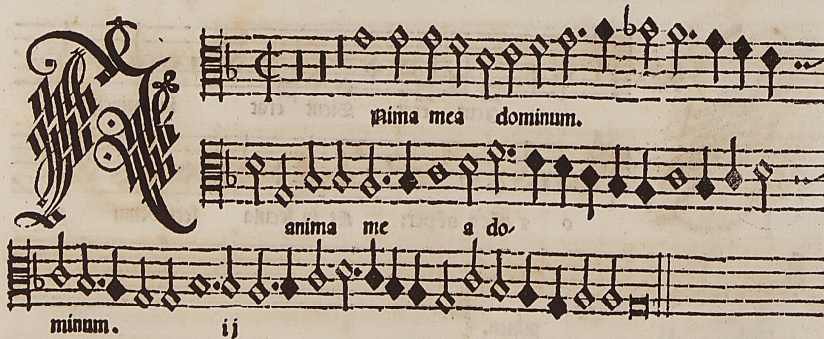 Anima mea dominum.
anima me a do-
minum. ij